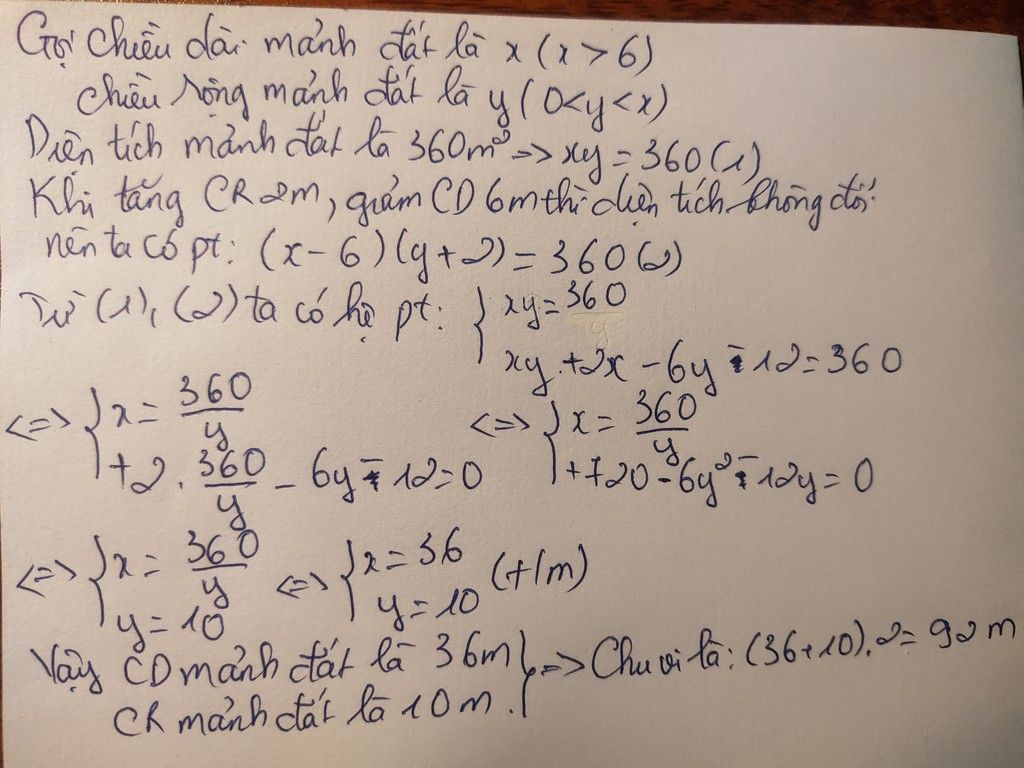 Gọi chiều dài mảnh đất là x (x > 6)
chiều rộng mảnh đất là y (0 < y < x)
Diện tích mảnh đất là 360m² => xy = 360 (1)
Khi tăng CR 2m, giảm CD 6m thì diện tích không đổi
nên ta có pt: (x - 6)(y + 2) = 360 (2)
Từ (1), (2) ta có hệ pt: { xy = 360
xy + 2x - 6y - 12 = 360
<=> { x = 360/y <=> { x = 360/y
+ 2 . 360/y - 6y - 12 = 0 + 720 - 6y² - 12y = 0
<=> { x = 360/y <=> { x = 36 (t/m)
y = 10 y = 10
Vậy CD mảnh đất là 36m } => Chu vi là: (36 + 10).2 = 92 m
CR mảnh đất là 10m.